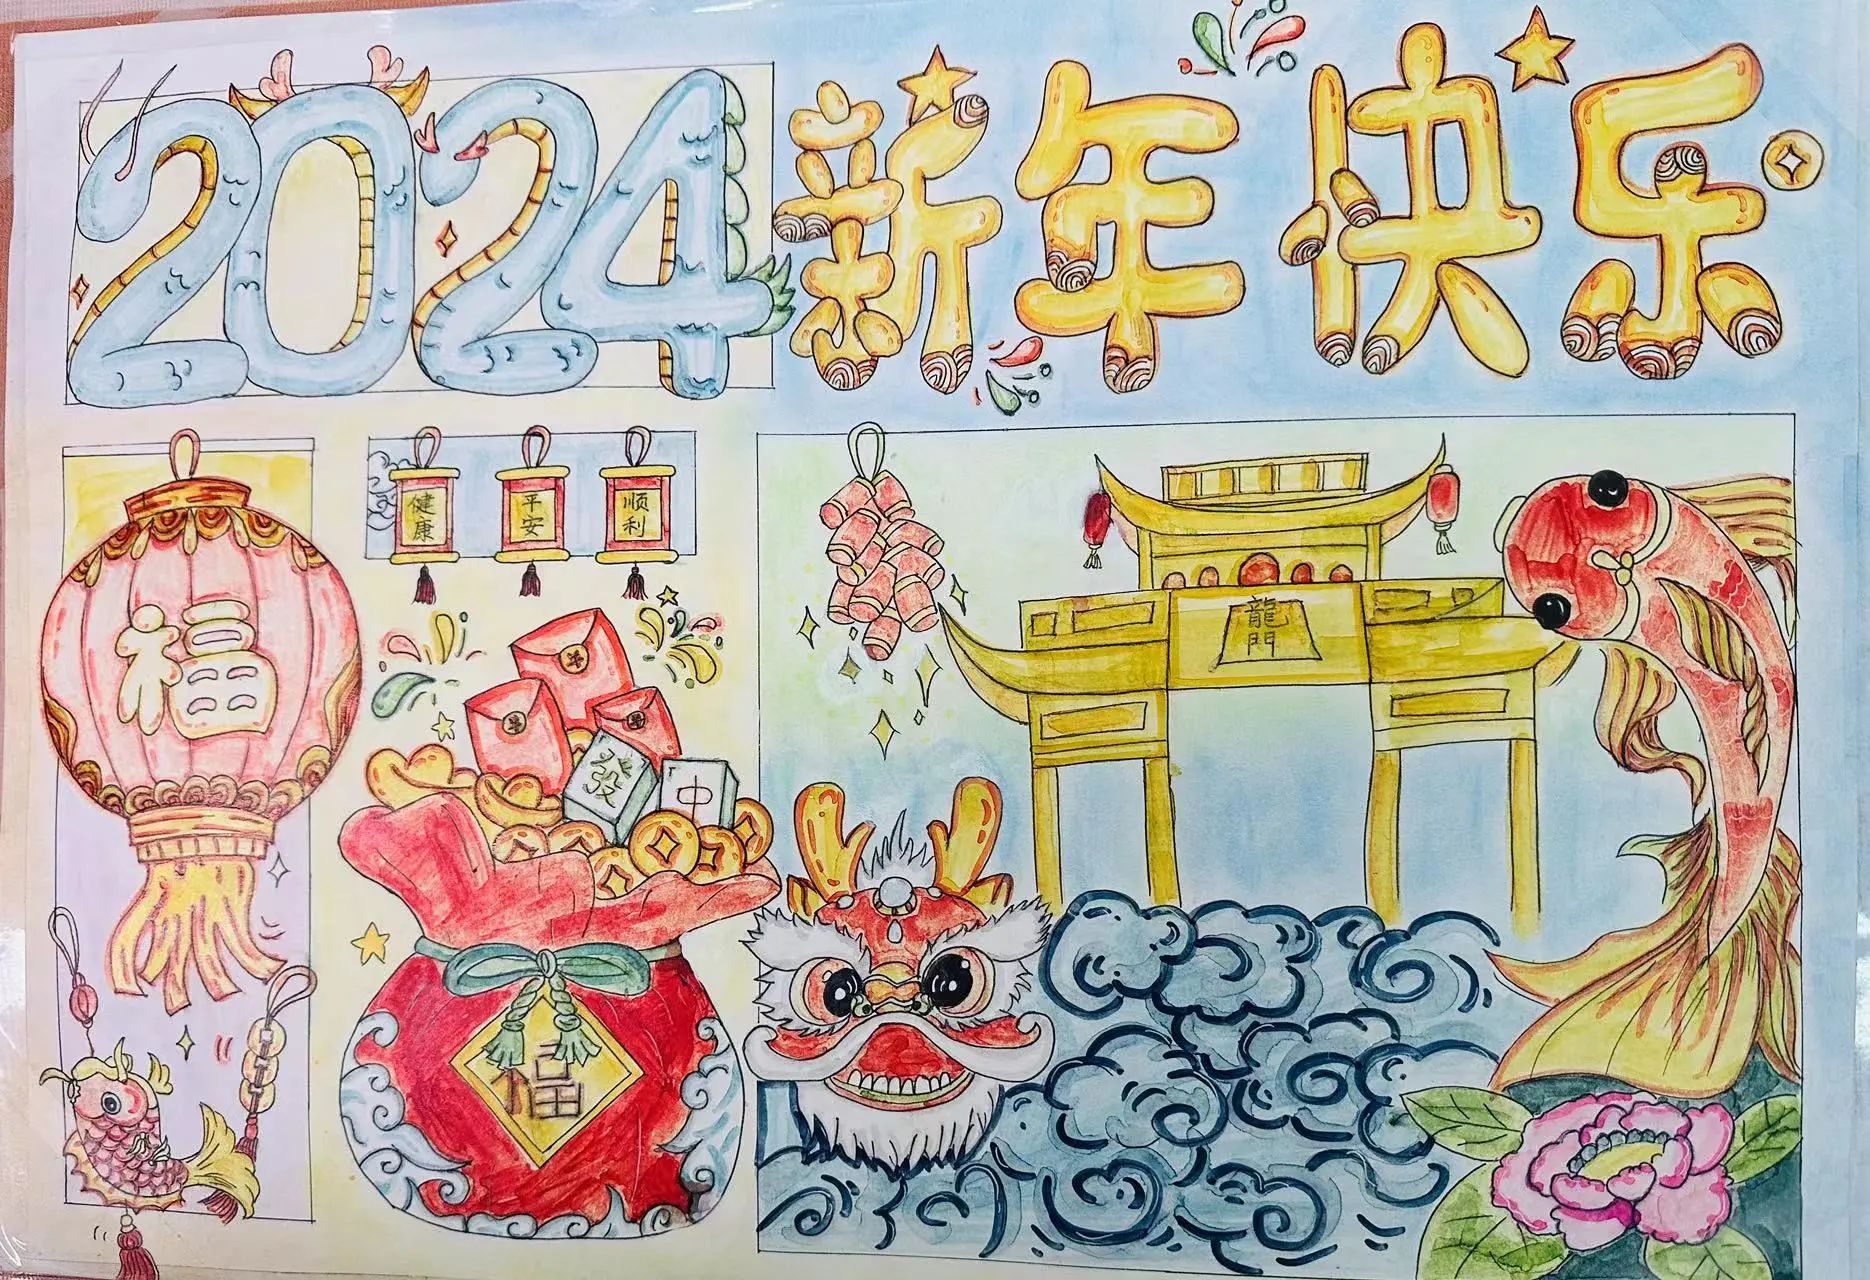 2024 新年快乐
健康
平安
顺利
福
龍門
發
中
福